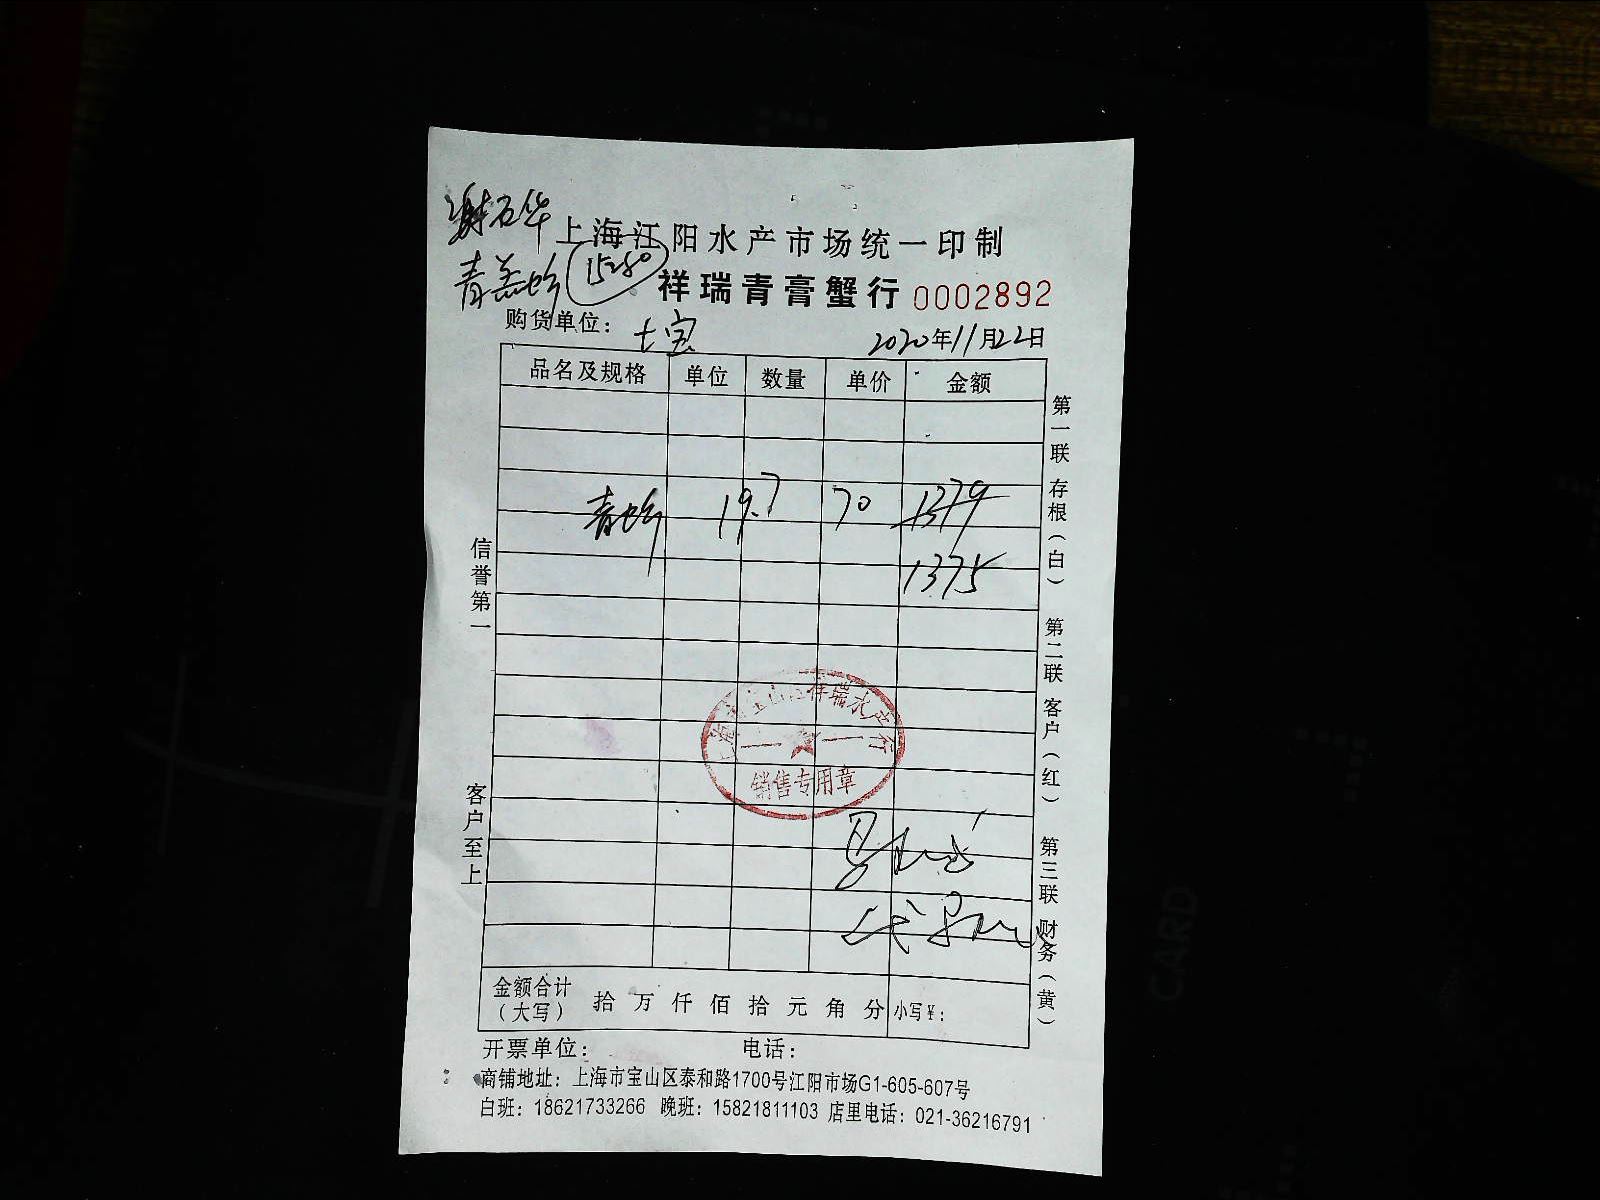 上海江阳水产市场统一印制
祥瑞青膏蟹行 0002892
15280
购货单位：七宝 2020年11月22日
品名及规格 单位 数量 单价 金额
19.7 70 1379
1375
信誉第一
客户至上
第一联 存根（白） 第二联 客户（红） 第三联 财务（黄）
销售专用章
金额合计（大写） 拾 万 仟 佰 拾 元 角 分 小写￥：
开票单位： 电话：
商铺地址：上海市宝山区泰和路1700号江阳市场G1-605-607号
白班：18621733266 晚班：15821811103 店里电话：021-36216791